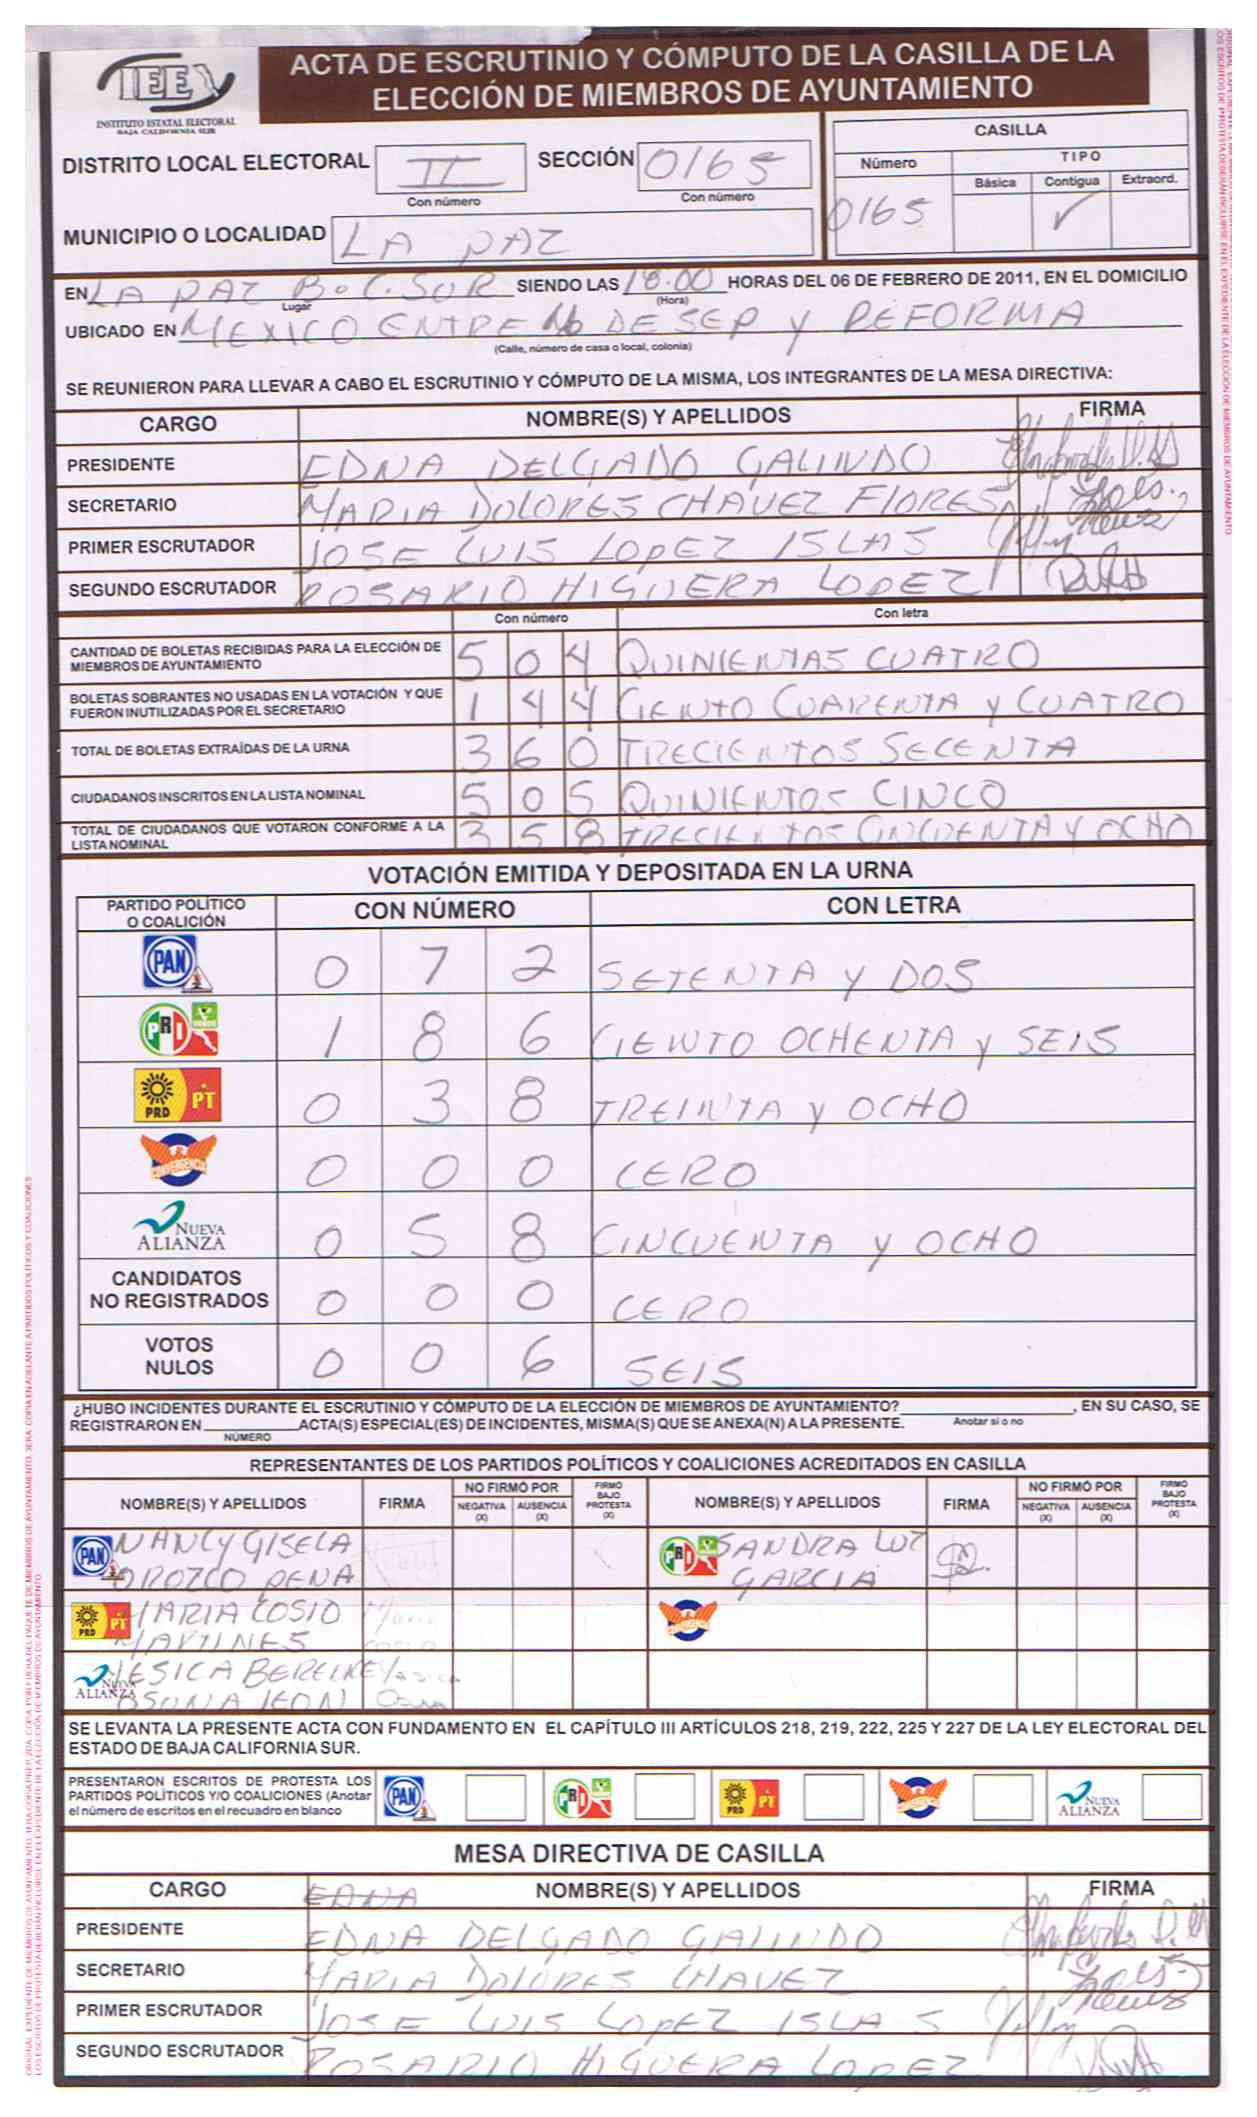 IEE
INSTITUTO ESTATAL ELECTORAL
BAJA CALIFORNIA SUR
ACTA DE ESCRUTINIO Y CÓMPUTO DE LA CASILLA DE LA
ELECCIÓN DE MIEMBROS DE AYUNTAMIENTO
DISTRITO LOCAL ELECTORAL II SECCIÓN 0165
Con número Con número
MUNICIPIO O LOCALIDAD LA PAZ
CASILLA
Número TIPO
Básica Contigua Extraord.
0165 ✓
EN LA PAZ B.C.SUR SIENDO LAS 18:00 HORAS DEL 06 DE FEBRERO DE 2011, EN EL DOMICILIO
Lugar (Hora)
UBICADO EN MEXICO ENTRE 16 DE SEP y REFORMA
(Calle, número de casa o local, colonia)
SE REUNIERON PARA LLEVAR A CABO EL ESCRUTINIO Y CÓMPUTO DE LA MISMA, LOS INTEGRANTES DE LA MESA DIRECTIVA:
CARGO NOMBRE(S) Y APELLIDOS FIRMA
PRESIDENTE EDNA DELGADO GALINDO
SECRETARIO MARIA DOLORES CHAVEZ FLORES
PRIMER ESCRUTADOR JOSE LUIS LOPEZ ISLAS
SEGUNDO ESCRUTADOR ROSARIO HIGUERA LOPEZ
Con número Con letra
CANTIDAD DE BOLETAS RECIBIDAS PARA LA ELECCIÓN DE
MIEMBROS DE AYUNTAMIENTO 5 0 4 QUINIENTAS CUATRO
BOLETAS SOBRANTES NO USADAS EN LA VOTACIÓN Y QUE
FUERON INUTILIZADAS POR EL SECRETARIO 1 4 4 CIENTO CUARENTA y CUATRO
TOTAL DE BOLETAS EXTRAÍDAS DE LA URNA 3 6 0 TRECIENTOS SECENTA
CIUDADANOS INSCRITOS EN LA LISTA NOMINAL 5 0 5 QUINIENTOS CINCO
TOTAL DE CIUDADANOS QUE VOTARON CONFORME A LA
LISTA NOMINAL 3 5 8 TRECIENTOS CINCUENTA Y OCHO
VOTACIÓN EMITIDA Y DEPOSITADA EN LA URNA
PARTIDO POLÍTICO
O COALICIÓN CON NÚMERO CON LETRA
PAN 0 7 2 SETENTA y DOS
PRI VERDE 1 8 6 CIENTO OCHENTA y SEIS
PRD PT 0 3 8 TREINTA y OCHO
CONVERGENCIA 0 0 0 CERO
NUEVA
ALIANZA 0 5 8 CINCUENTA y OCHO
CANDIDATOS
NO REGISTRADOS 0 0 0 CERO
VOTOS
NULOS 0 0 6 SEIS
¿HUBO INCIDENTES DURANTE EL ESCRUTINIO Y CÓMPUTO DE LA ELECCIÓN DE MIEMBROS DE AYUNTAMIENTO? , EN SU CASO, SE
REGISTRARON EN ACTA(S) ESPECIAL(ES) DE INCIDENTES, MISMA(S) QUE SE ANEXA(N) A LA PRESENTE. Anotar si o no
NÚMERO
REPRESENTANTES DE LOS PARTIDOS POLÍTICOS Y COALICIONES ACREDITADOS EN CASILLA
NOMBRE(S) Y APELLIDOS FIRMA NO FIRMÓ POR NEGATIVA (X) AUSENCIA (X) FIRMÓ BAJO PROTESTA (X) NOMBRE(S) Y APELLIDOS FIRMA NO FIRMÓ POR NEGATIVA (X) AUSENCIA (X) FIRMÓ BAJO PROTESTA (X)
PAN NANCY GISELA PRI SANDRA LUZ
OROZCO PENA GARCIA
PRD PT MARIA COSIO
MARTINES
NUEVA ALIANZA
OSUNA LEON
SE LEVANTA LA PRESENTE ACTA CON FUNDAMENTO EN EL CAPÍTULO III ARTÍCULOS 218, 219, 222, 225 Y 227 DE LA LEY ELECTORAL DEL
ESTADO DE BAJA CALIFORNIA SUR.
PRESENTARON ESCRITOS DE PROTESTA LOS
PARTIDOS POLÍTICOS Y/O COALICIONES (Anotar
el número de escritos en el recuadro en blanco
PAN PRI PRD PT NUEVA ALIANZA
MESA DIRECTIVA DE CASILLA
CARGO EDNA NOMBRE(S) Y APELLIDOS FIRMA
PRESIDENTE EDNA DELGADO GALINDO
SECRETARIO MARIA DOLORES CHAVEZ
PRIMER ESCRUTADOR JOSE LUIS LOPEZ ISLAS
SEGUNDO ESCRUTADOR ROSARIO HIGUERA LOPEZ